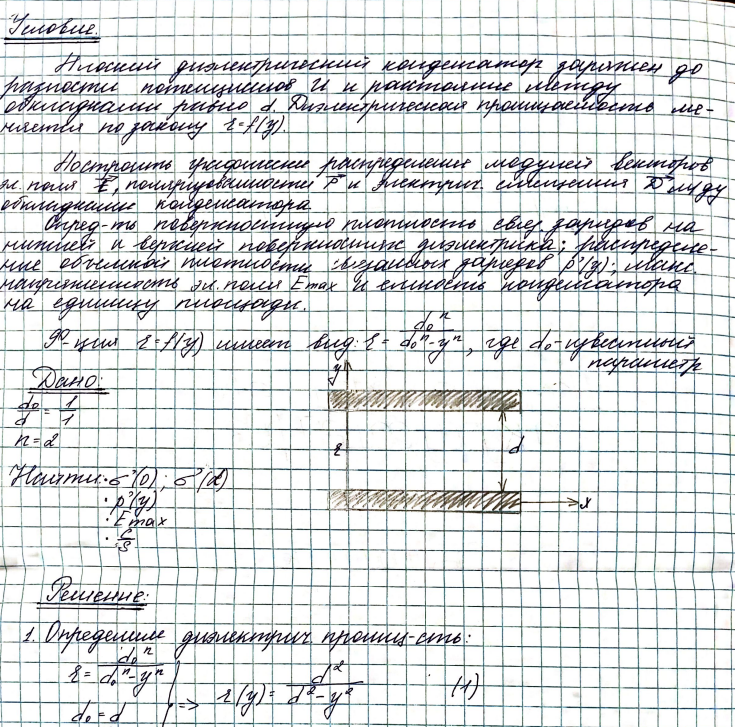 Условие.
Плоский диэлектрический конденсатор заряжен до
разности потенциалов U и расстояние между
обкладками равно d. Диэлектрическая проницаемость ме-
няется по закону ε=f(y).
Построить графические распределения модулей векторов
эл. поля E⃗, поляризованности P⃗ и электрич. смещения D⃗ между
обкладками конденсатора
Опред-ть поверхностную плотность связ. зарядов на
нижней и верхней поверхностях диэлектрика; распределе-
ние объемной плотности связанных зарядов ρ'(y); макс.
напряженность эл. поля Emax и емкость конденсатора
на единицу площади.
Ф-ция ε=f(y) имеет вид: ε = d₀ⁿ/(d₀ⁿ-yⁿ), где d₀-известный
параметр
Дано:
d₀/d = 1/1
n=2
Найти: · σ'(0); σ'(d)
· ρ'(y)
· Emax
· C/S
y
ε
d
x
Решение:
1. Определим диэлектрич прониц-сть:
ε = d₀ⁿ/(d₀ⁿ-yⁿ)
d₀ = d
=> ε(y) = d²/(d²-y²) (1)